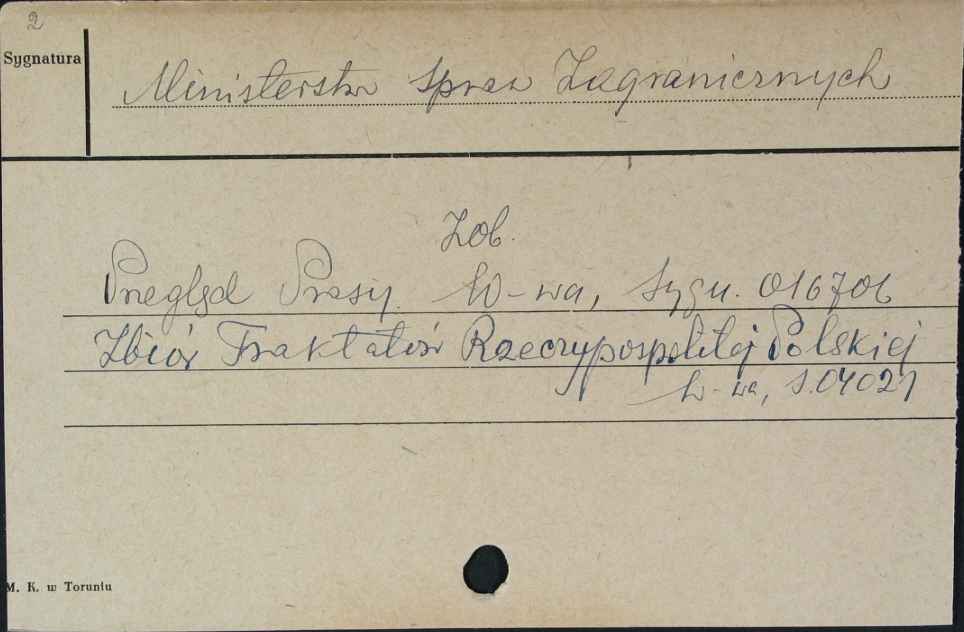 2
Sygnatura
Ministerstwo Spraw Zagranicznych
Zob.
Przegląd Prasy. W-wa, Sygn. 016706
Zbiór Traktatów Rzeczypospolitej Polskiej
W-wa, S.04021
M. K. w Toruniu